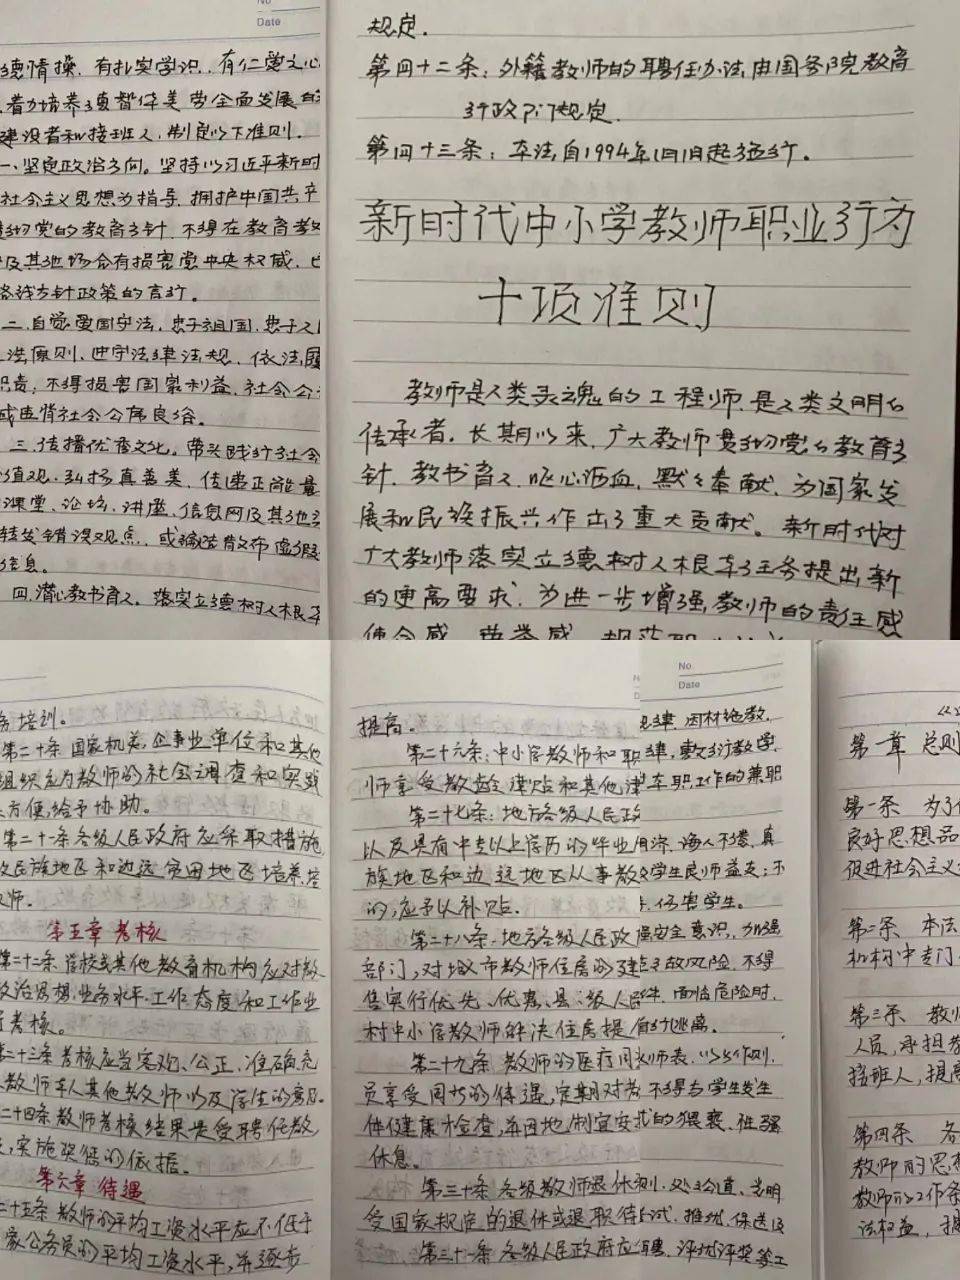 No
Date
德情操，有扎实学识，有仁爱之心
着力培养德智体美劳全面发展的
建设者和接班人，制定以下准则。
一、坚定政治方向。坚持以习近平新时
社会主义思想为指导，拥护中国共产
贯彻党的教育方针，不得在教育教
及其他场合有损害党中央权威，
路线方针政策的言行。
二、自觉爱国守法，忠于祖国，忠于人
法原则、遵守法律法规，依法履
职责，不得损害国家利益，社会公
或违背社会公序良俗。
三、传播优秀文化。带头践行社会
价值观，弘扬真善美，传递正能量
课堂、论坛、讲座、信息网及其他
转发错误观点，或编造散布虚假
信息。
四、潜心教书育人。落实立德树人根本
规定.
第四十二条：外籍教师的聘任办法由国务院教育
行政部门规定.
第四十三条：本法自1994年1月1日起施行。
新时代中小学教师职业行为
十项准则
教师是人类灵魂的工程师，是人类文明的
传承者。长期以来，广大教师贯彻党的教育方
针，教书育人，呕心沥血，默默奉献，为国家发
展和民族振兴作出了重大贡献。新时代对
广大教师落实立德树人根本任务提出新
的更高要求，为进一步增强教师的责任感
使命感，荣誉感，规范职业
务培训。
第二十条 国家机关，企事业单位和其他
组织应为教师的社会调查和实践
方便，给予协助。
第二十一条各级人民政府应采取措施
民族地区和边远贫困地区培养培
教师。
第五章 考核
第二十二条 学校或其他教育机构应对教
政治思想，业务水平，工作态度和工作业
行考核。
二十三条 考核应当客观、公正、准确，充
教师本人其他教师以及学生的意见。
二十四条教师考核结果是受聘任教
，实施奖惩的依据。
第六章 待遇
二十五条 教师的平均工资水平应不低于
家公务员的平均工资水平，并逐步
提高。
第二十六条：中小学教师和职
师享受教龄津贴和其他津
第二十七条：地方各级人民政
以及具有中专以上学历的毕业
族地区和边远地区从事教
的，应予以补贴.
第二十八条.地方各级人民政
部门，对城市教师住房的建
售实行优先、优惠、县、级人民
村中小学教师解决住房提
第二十九条 教师的医疗同
员享受同等的待遇，定期对
体健康检查，并因地制宜安
休息。
第三十条 各级教师退休
受国家规定的退休或退职待
第三十一条 各级人民政府应
No
Date
规律，因材施教，
律，敷衍教学，
本职工作的兼职
诲人不倦，真
学生良师益友；不
，伤害学生。
安全意识，加强
事故风险，不得
，面临危险时，
自行逃离。
师表，以身作则，
不得与学生发生
的猥亵、性骚
，处事公道、光明
试、推优、保送
聘，评优评奖等工
第一章 总则
第一条 为了
良好思想品
促进社会主义
第二条 本法
机构中专门
第三条 教师
人员，承担教
接班人，提高
第四条 各
教师的思想
教师的工作条
法权益，提